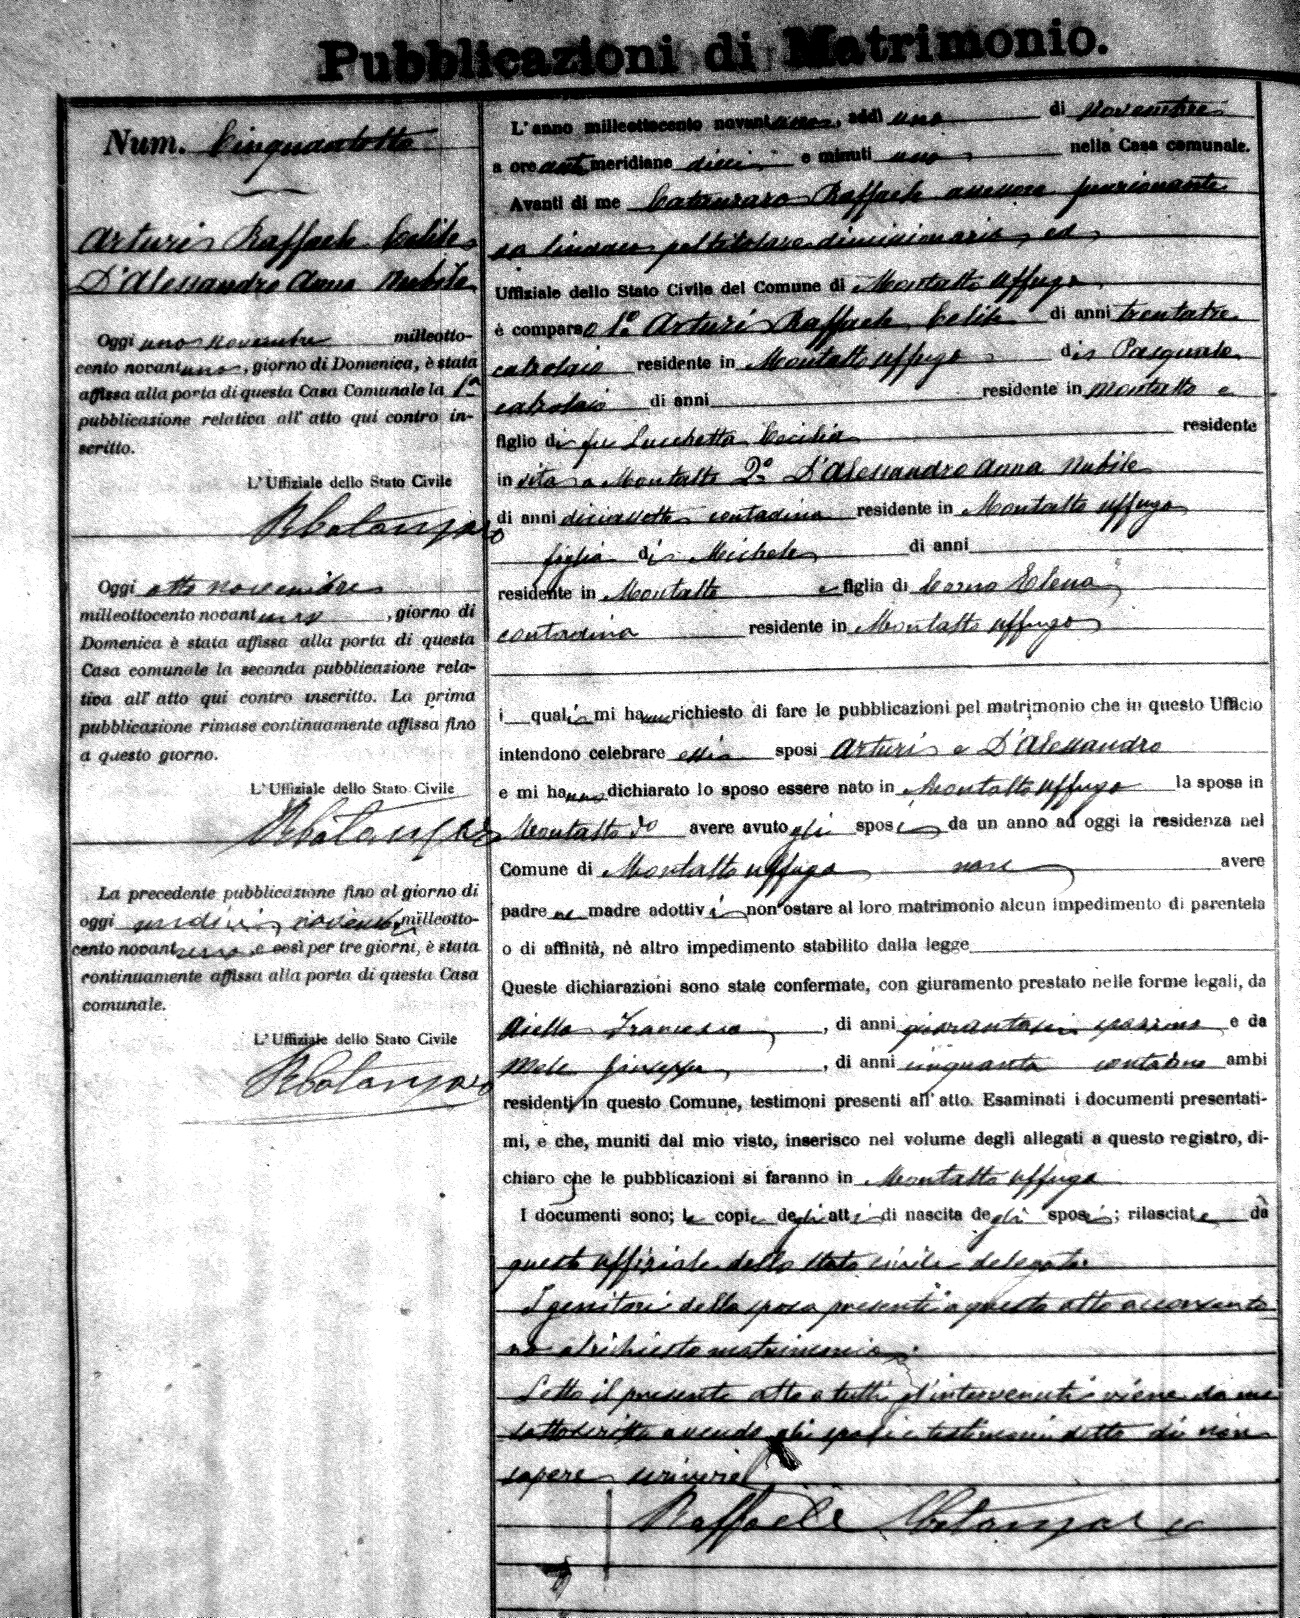 Pubblicazioni di Matrimonio.
Num. Cinquantotto
Arturi Raffaele Celibe
D'Alessandro Anna Nubile
Oggi uno novembre milleotto-
cento novantuno, giorno di Domenica, è stata
affissa alla porta di questa Casa Comunale la 1a
pubblicazione relativa all' atto qui contro in-
scritto.
L'Uffiziale dello Stato Civile
RCatanzaro
Oggi otto novembre
milleottocento novantuno, giorno di
Domenica è stata affissa alla porta di questa
Casa comunale la seconda pubblicazione rela-
tiva all' atto qui contro inscritto. La prima
pubblicazione rimase continuamente affissa fino
a questo giorno.
L'Uffiziale dello Stato Civile
RCatanzaro
La precedente pubblicazione fino al giorno di
oggi undici novembre milleotto-
cento novantuno e così per tre giorni, è stata
continuamente affissa alla porta di questa Casa
comunale.
L'Uffiziale dello Stato Civile
RCatanzaro
L'anno milleottocento novantuno, addì uno di novembre
a ore antimeridiane dieci e minuti uno nella Casa comunale.
Avanti di me Catanzaro Raffaele assessore funzionante
da Sindaco pel titolare dimissionario, ed
Uffiziale dello Stato Civile del Comune di Montalto Uffugo
è comparso 1o Arturi Raffaele Celibe di anni trentatre
calzolaio residente in Montalto Uffugo di Pasquale
calzolaio di anni residente in Montalto e
figlio di fu Lucchetta Cecilia residente
in vita a Montalto 2o D'Alessandro Anna Nubile
di anni diciassette contadina residente in Montalto Uffugo
figlia di Michele di anni
residente in Montalto e figlia di Elena
contadina residente in Montalto Uffugo
i quali mi hanno richiesto di fare le pubblicazioni pel matrimonio che in questo Ufficio
intendono celebrare essi sposi Arturi e D'Alessandro
e mi hanno dichiarato lo sposo essere nato in Montalto Uffugo la sposa in
Montalto do avere avuto gli sposi da un anno ad oggi la residenza nel
Comune di Montalto Uffugo non avere
padre ne madre adottivi non ostare al loro matrimonio alcun impedimento di parentela
o di affinità, nè altro impedimento stabilito dalla legge
Queste dichiarazioni sono state confermate, con giuramento prestato nelle forme legali, da
Aiello Francesco, di anni quarantasei spazzino e da
Mele Giuseppe, di anni cinquanta contadino ambi
residenti in questo Comune, testimoni presenti all'atto. Esaminati i documenti presentati-
mi, e che, muniti dal mio visto, inserisco nel volume degli allegati a questo registro, di-
chiaro che le pubblicazioni si faranno in Montalto Uffugo
I documenti sono; le copie degli atti di nascita degli sposi; rilasciate da
questo uffiziale dello stato civile delegato.
I genitori della sposa presenti a questo atto acconsento
no al richiesto matrimonio.
Letto il presente atto a tutti gl'intervenuti viene da me
sottoscritto avendo gli sposi e testimoni detto di non
sapere scrivere
Raffaele Catanzaro